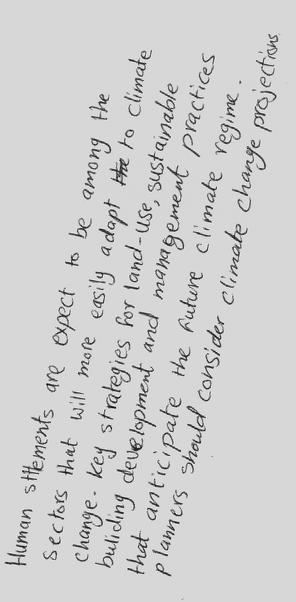 Human sttlements are expect to be among the
sectors that will more easily adapt to climate
change. Key strategies for land-use, sustainable
buliding development and management practices
that anticipate the future climate regime.
planners should consider climate change projections